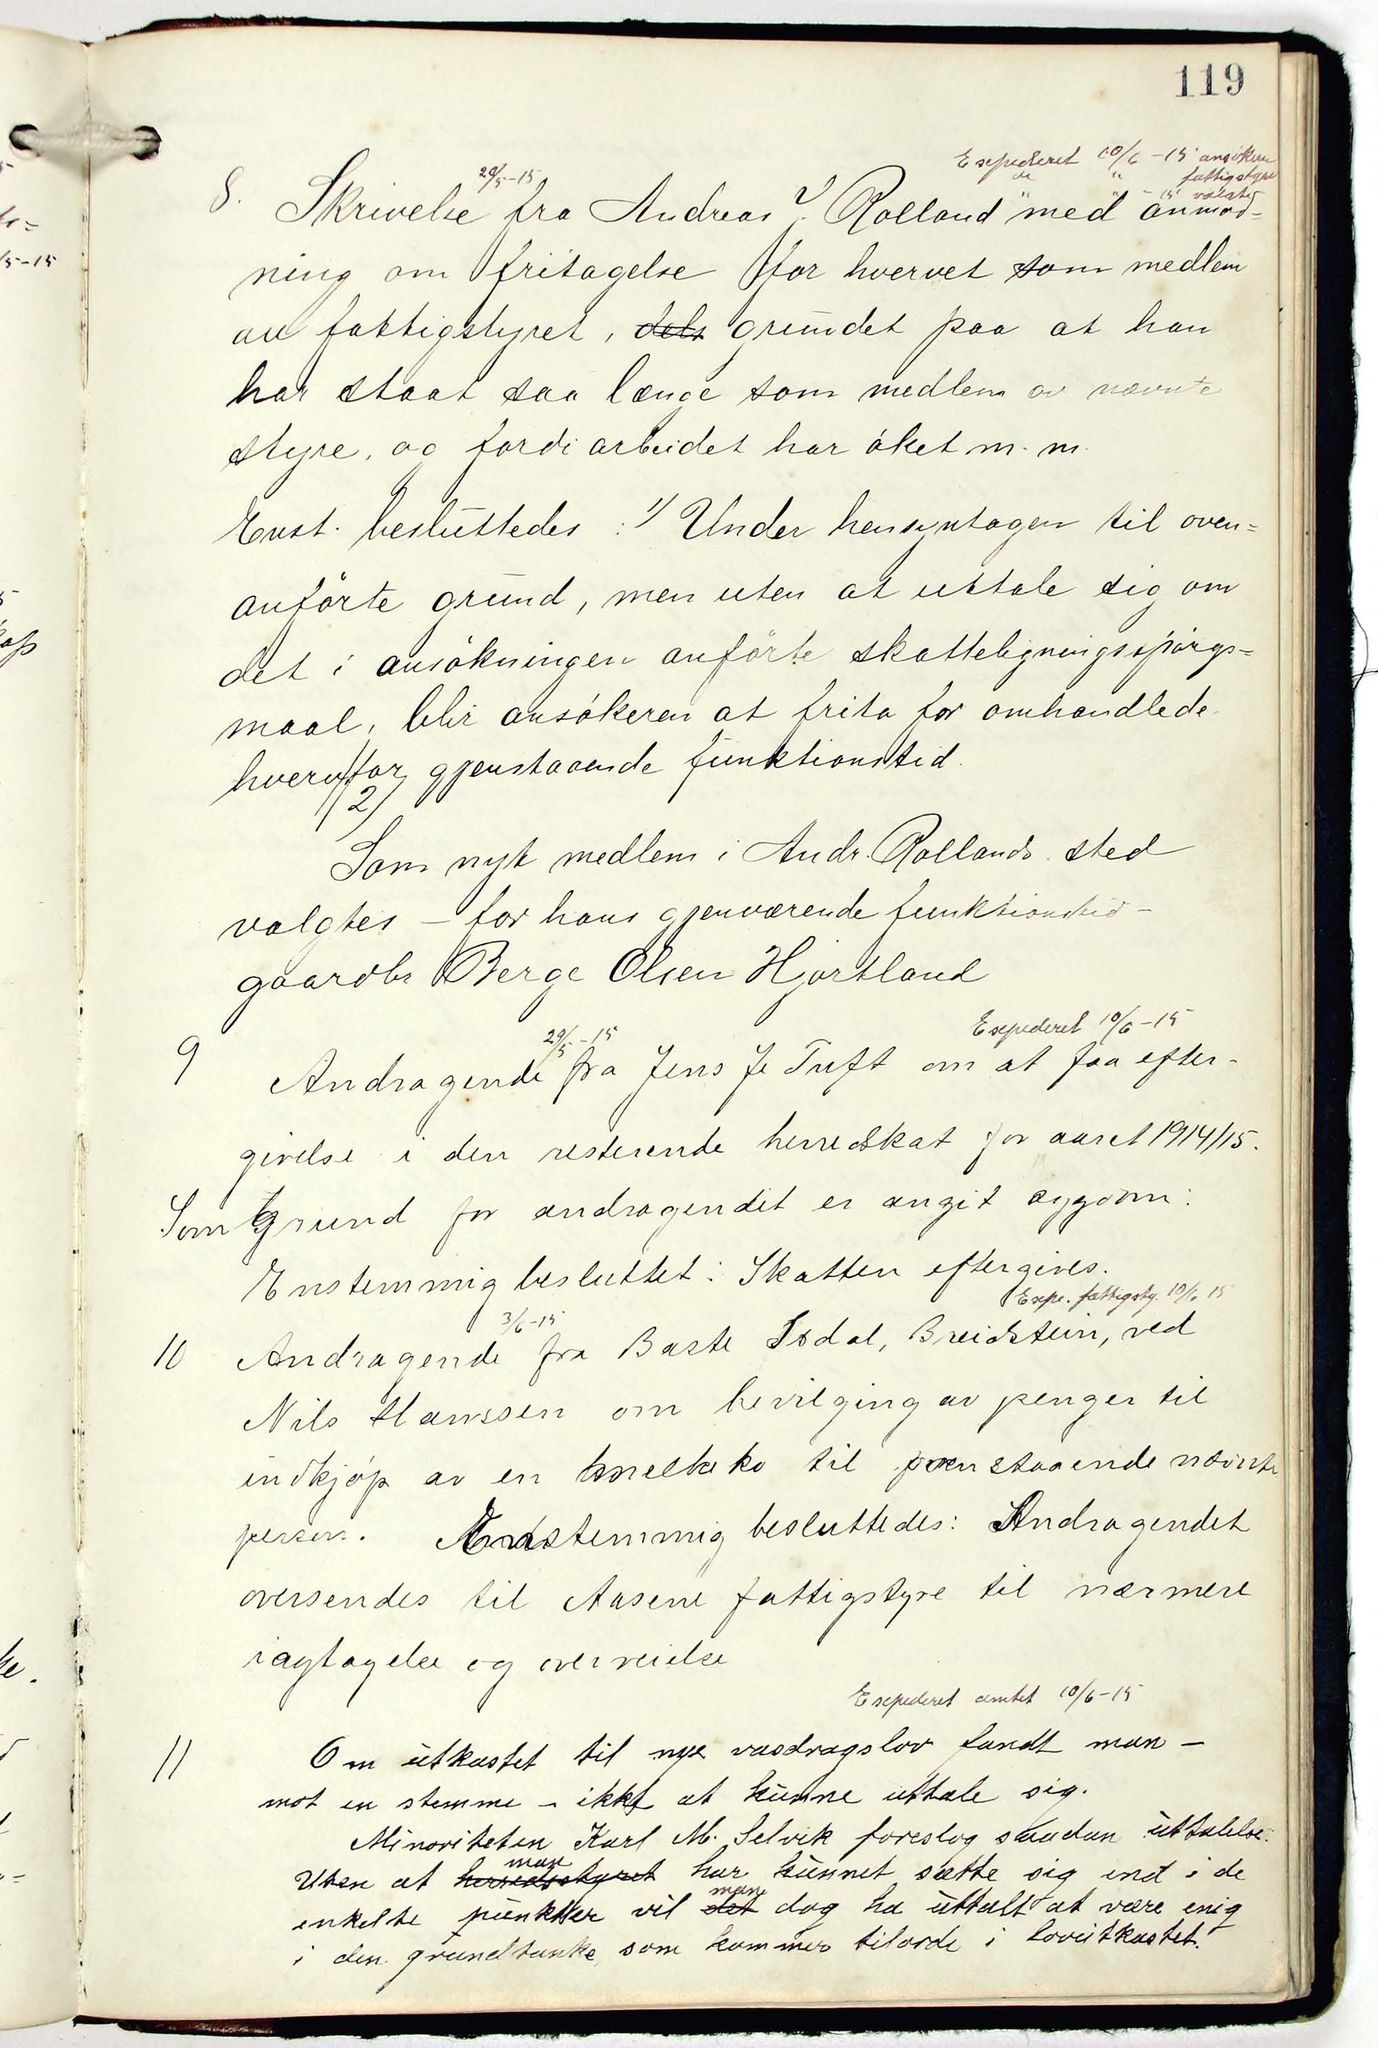 119
Expederet 10/6 - 15 ansökeren
" " fattigstyre
" " - 15 valgte
29/5-15
8. Skrivelse fra Andreas J. Rolland med anmod=
ning om fritagelse for hvervet som medlem
av fattigstyret, dels grundet paa at han
har staat saa længe som medlem av nævnte
styre, og fordi arbeidet har öket m. m.
Enst. besluttedes : 1/ Under hensyntagen til oven=
anförte grund, men uten at uttale sig om
det i ansökningen anförte skatteligningsspörgs=
maal, blir ansökeren at frita for omhandlede
hverv for gjenstaaende funktionstid.
2/
Som nyt medlem i Andr. Rollands sted
valgtes - for hans gjenværende funktionstid -
gaardbr Berge Olsen Hjortland
29/5 - 15 Expederet 10/6 - 15
9 Andragende fra Jens J. Tuft om at faa efter-
givelse i den resterende herredskat for aaret 1914/15.
Som grund for andragendet er angit sygdom:
Enstemmig besluttet: Skatten eftergives.
3/6-15 Expe. fattigsty. 10/6 15
10 Andragende fra Baste Isdal, Breidstein, ved
Nils Hanssen om bevilging av penger til
indkjöp av en melkeko til ovenstaaende nævnte
person. Enstemmig besluttedes: Andragendet
oversendes til Aasene fattigstyre til nærmere
iagtagelse og overveielse
Expederet amtet 10/6-15
11 Om utkastet til nye vasdragslov fandt man -
mot en stemme - ikke at kunne uttale sig.
Minoriteten Karl M. Selvik foreslog saadan uttalelse:
man
Uten at herredsstyret har kunnet sætte sig ind i de
man
enkelte punkter vil det dog ha uttalt at være enig
i den grundtanke som kommer tilorde i lovutkastet.